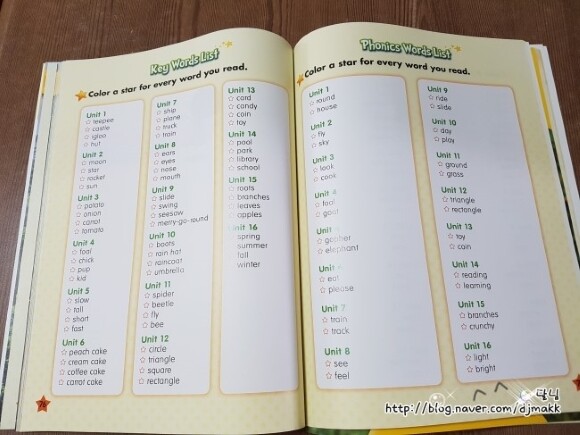 Key Words List
Color a star for every word you read.
Unit 1
teepee
castle
igloo
hut
Unit 2
moon
star
rocket
sun
Unit 3
potato
onion
carrot
tomato
Unit 4
foal
chick
pup
kid
Unit 5
slow
tall
short
fast
Unit 6
peach cake
cream cake
coffee cake
carrot cake
Unit 7
ship
plane
truck
train
Unit 8
ears
eyes
nose
mouth
Unit 9
slide
swing
seesaw
merry-go-round
Unit 10
boots
rain hat
raincoat
umbrella
Unit 11
spider
beetle
fly
bee
Unit 12
circle
triangle
square
rectangle
Unit 13
card
candy
coin
toy
Unit 14
pool
park
library
school
Unit 15
roots
branches
leaves
apples
Unit 16
spring
summer
fall
winter
Phonics Words List
Color a star for every word you read.
Unit 1
round
house
Unit 2
fly
sky
Unit 3
look
cook
Unit 4
foal
goat
Unit
gopher
elephant
Unit 6
eat
please
Unit 7
train
track
Unit 8
see
feel
Unit 9
ride
slide
Unit 10
day
play
Unit 11
ground
grass
Unit 12
triangle
rectangle
Unit 13
toy
coin
Unit 14
reading
learning
Unit 15
branches
crunchy
Unit 16
light
bright
^^
http://blog.naver.com/djmakk